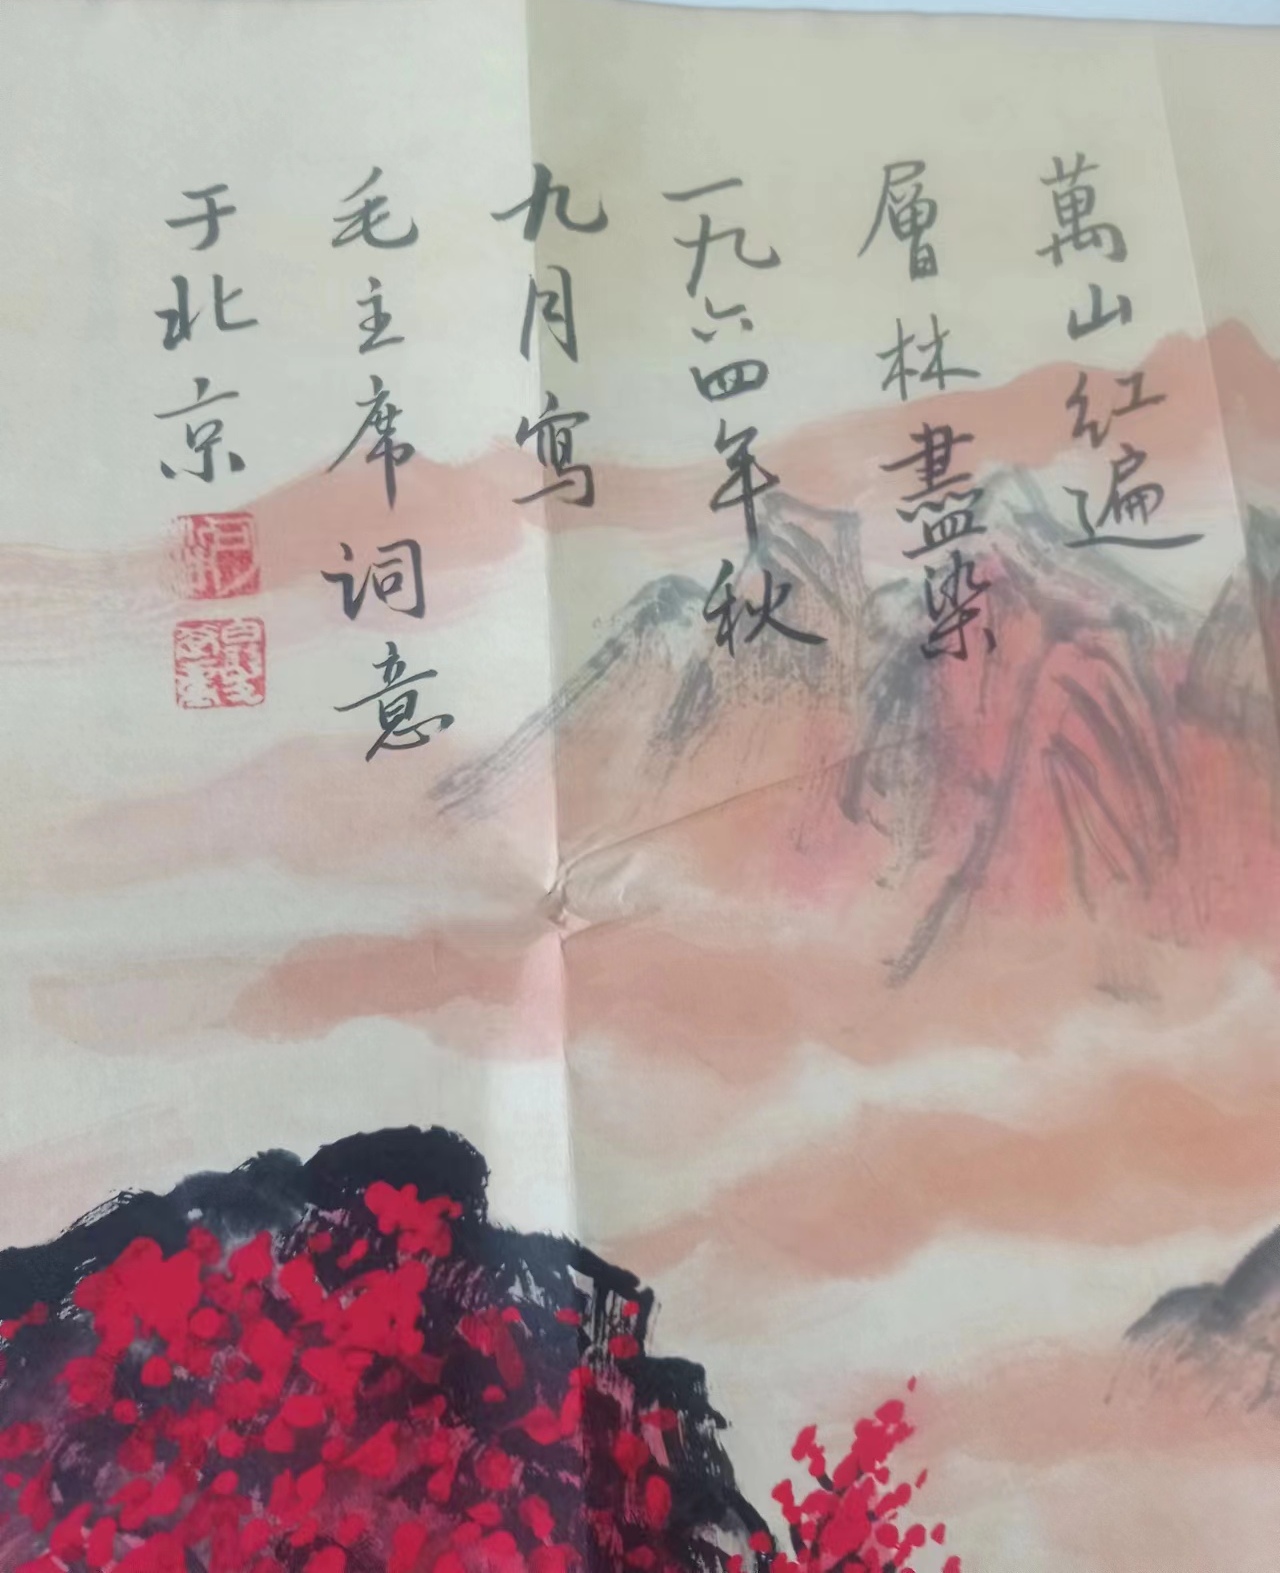 萬山红遍
層林盡染
一九六四年秋
九月寫
毛主席词意
于北京